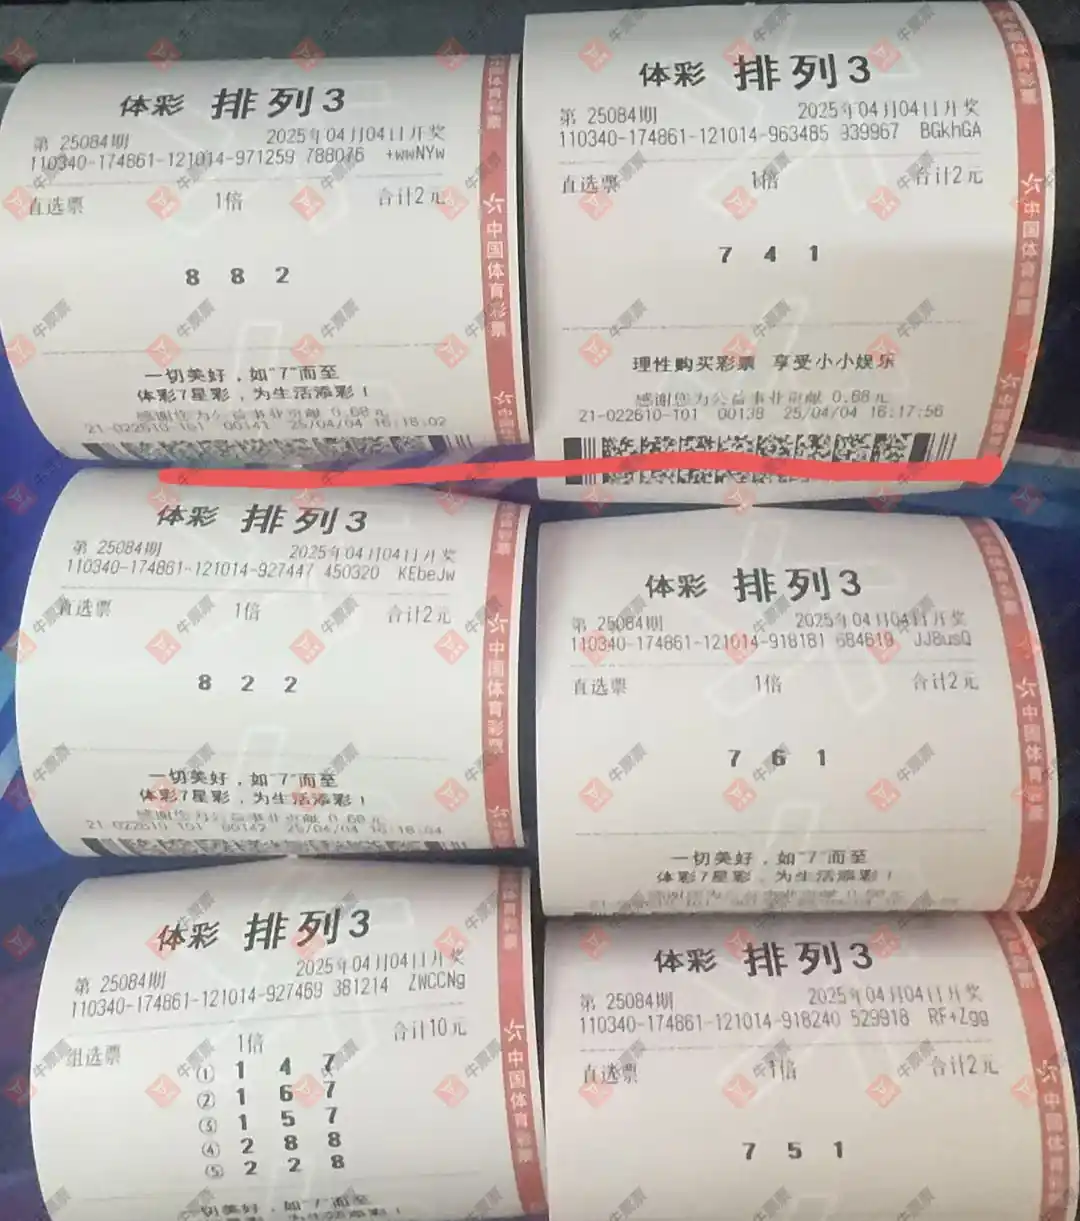 体彩 排列3
第 25084期 2025年04月04日开奖
110340-174861-121014-971259 788076 +wwNYw
直选票 1倍 合计2元
8 8 2
一切美好,如"7"而至
体彩7星彩,为生活添彩!
感谢您为公益事业贡献 0.68元
21-022610-101 00141 25/04/04 16:18:02
体彩 排列3
第 25084期 2025年04月04日开奖
110340-174861-121014-963485 939967 BGkhGA
直选票 1倍 合计2元
7 4 1
理性购买彩票 享受小小娱乐
感谢您为公益事业贡献 0.68元
21-022610-101 00138 25/04/04 16:17:56
体彩 排列3
第 25084期 2025年04月04日开奖
110340-174861-121014-927447 450320 KEbeJw
直选票 1倍 合计2元
8 2 2
一切美好,如"7"而至
体彩7星彩,为生活添彩!
感谢您为公益事业贡献 0.68元
21-022610-101 00142 25/04/04 16:18:04
体彩 排列3
第 25084期 2025年04月04日开奖
110340-174861-121014-918181 684619 JJ8usQ
直选票 1倍 合计2元
7 6 1
一切美好,如"7"而至
体彩7星彩,为生活添彩!
体彩 排列3
第 25084期 2025年04月04日开奖
110340-174861-121014-927469 381214 ZWCCNg
组选票 1倍 合计10元
① 1 4 7
② 1 6 7
③ 1 5 7
④ 2 8 8
⑤ 2 2 8
一切美好,如"7"而至
体彩 排列3
第 25084期 2025年04月04日开奖
110340-174861-121014-918240 529918 RF+Zgg
直选票 1倍 合计2元
7 5 1
中国体育彩票
牛票票